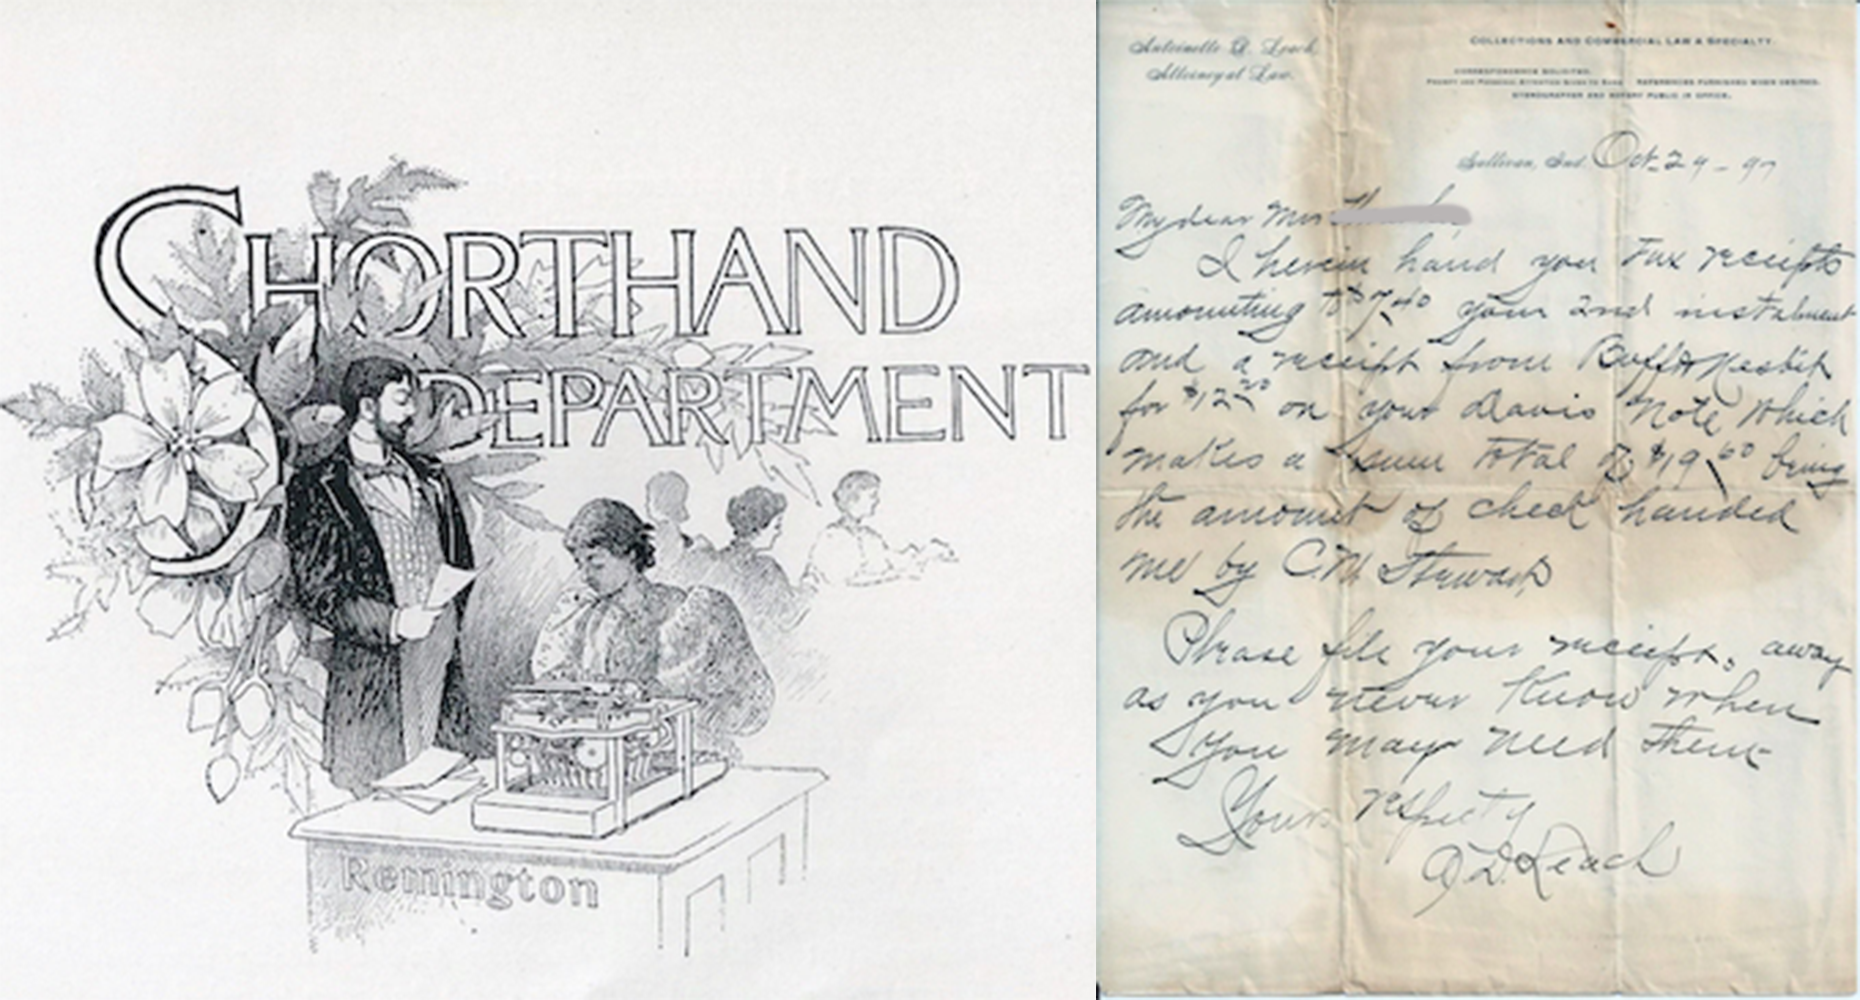 SHORTHAND
DEPARTMENT
Remington
Antoinette D. Leach
Attorney at Law.
COLLECTIONS AND COMMERCIAL LAW A SPECIALTY.
CORRESPONDENCE SOLICITED.
PROMPT AND PERSONAL ATTENTION GIVEN TO SAME REFERENCES FURNISHED WHEN DESIRED.
STENOGRAPHER AND NOTARY PUBLIC IN OFFICE.
Sullivan, Ind. Oct. 29 - 97
My dear Mrs
I herein hand you Tax receipts
amounting to $7.40 your 2nd instalment
and a receipt from Buff & Nesbit
for $12.20 on your Davis Note which
makes a sum total of $19.60 being
the amount of check handed
me by C.M. Stewart,
Please file your receipts away
as you never know when
you may need them
Yours respecty
A D Leach